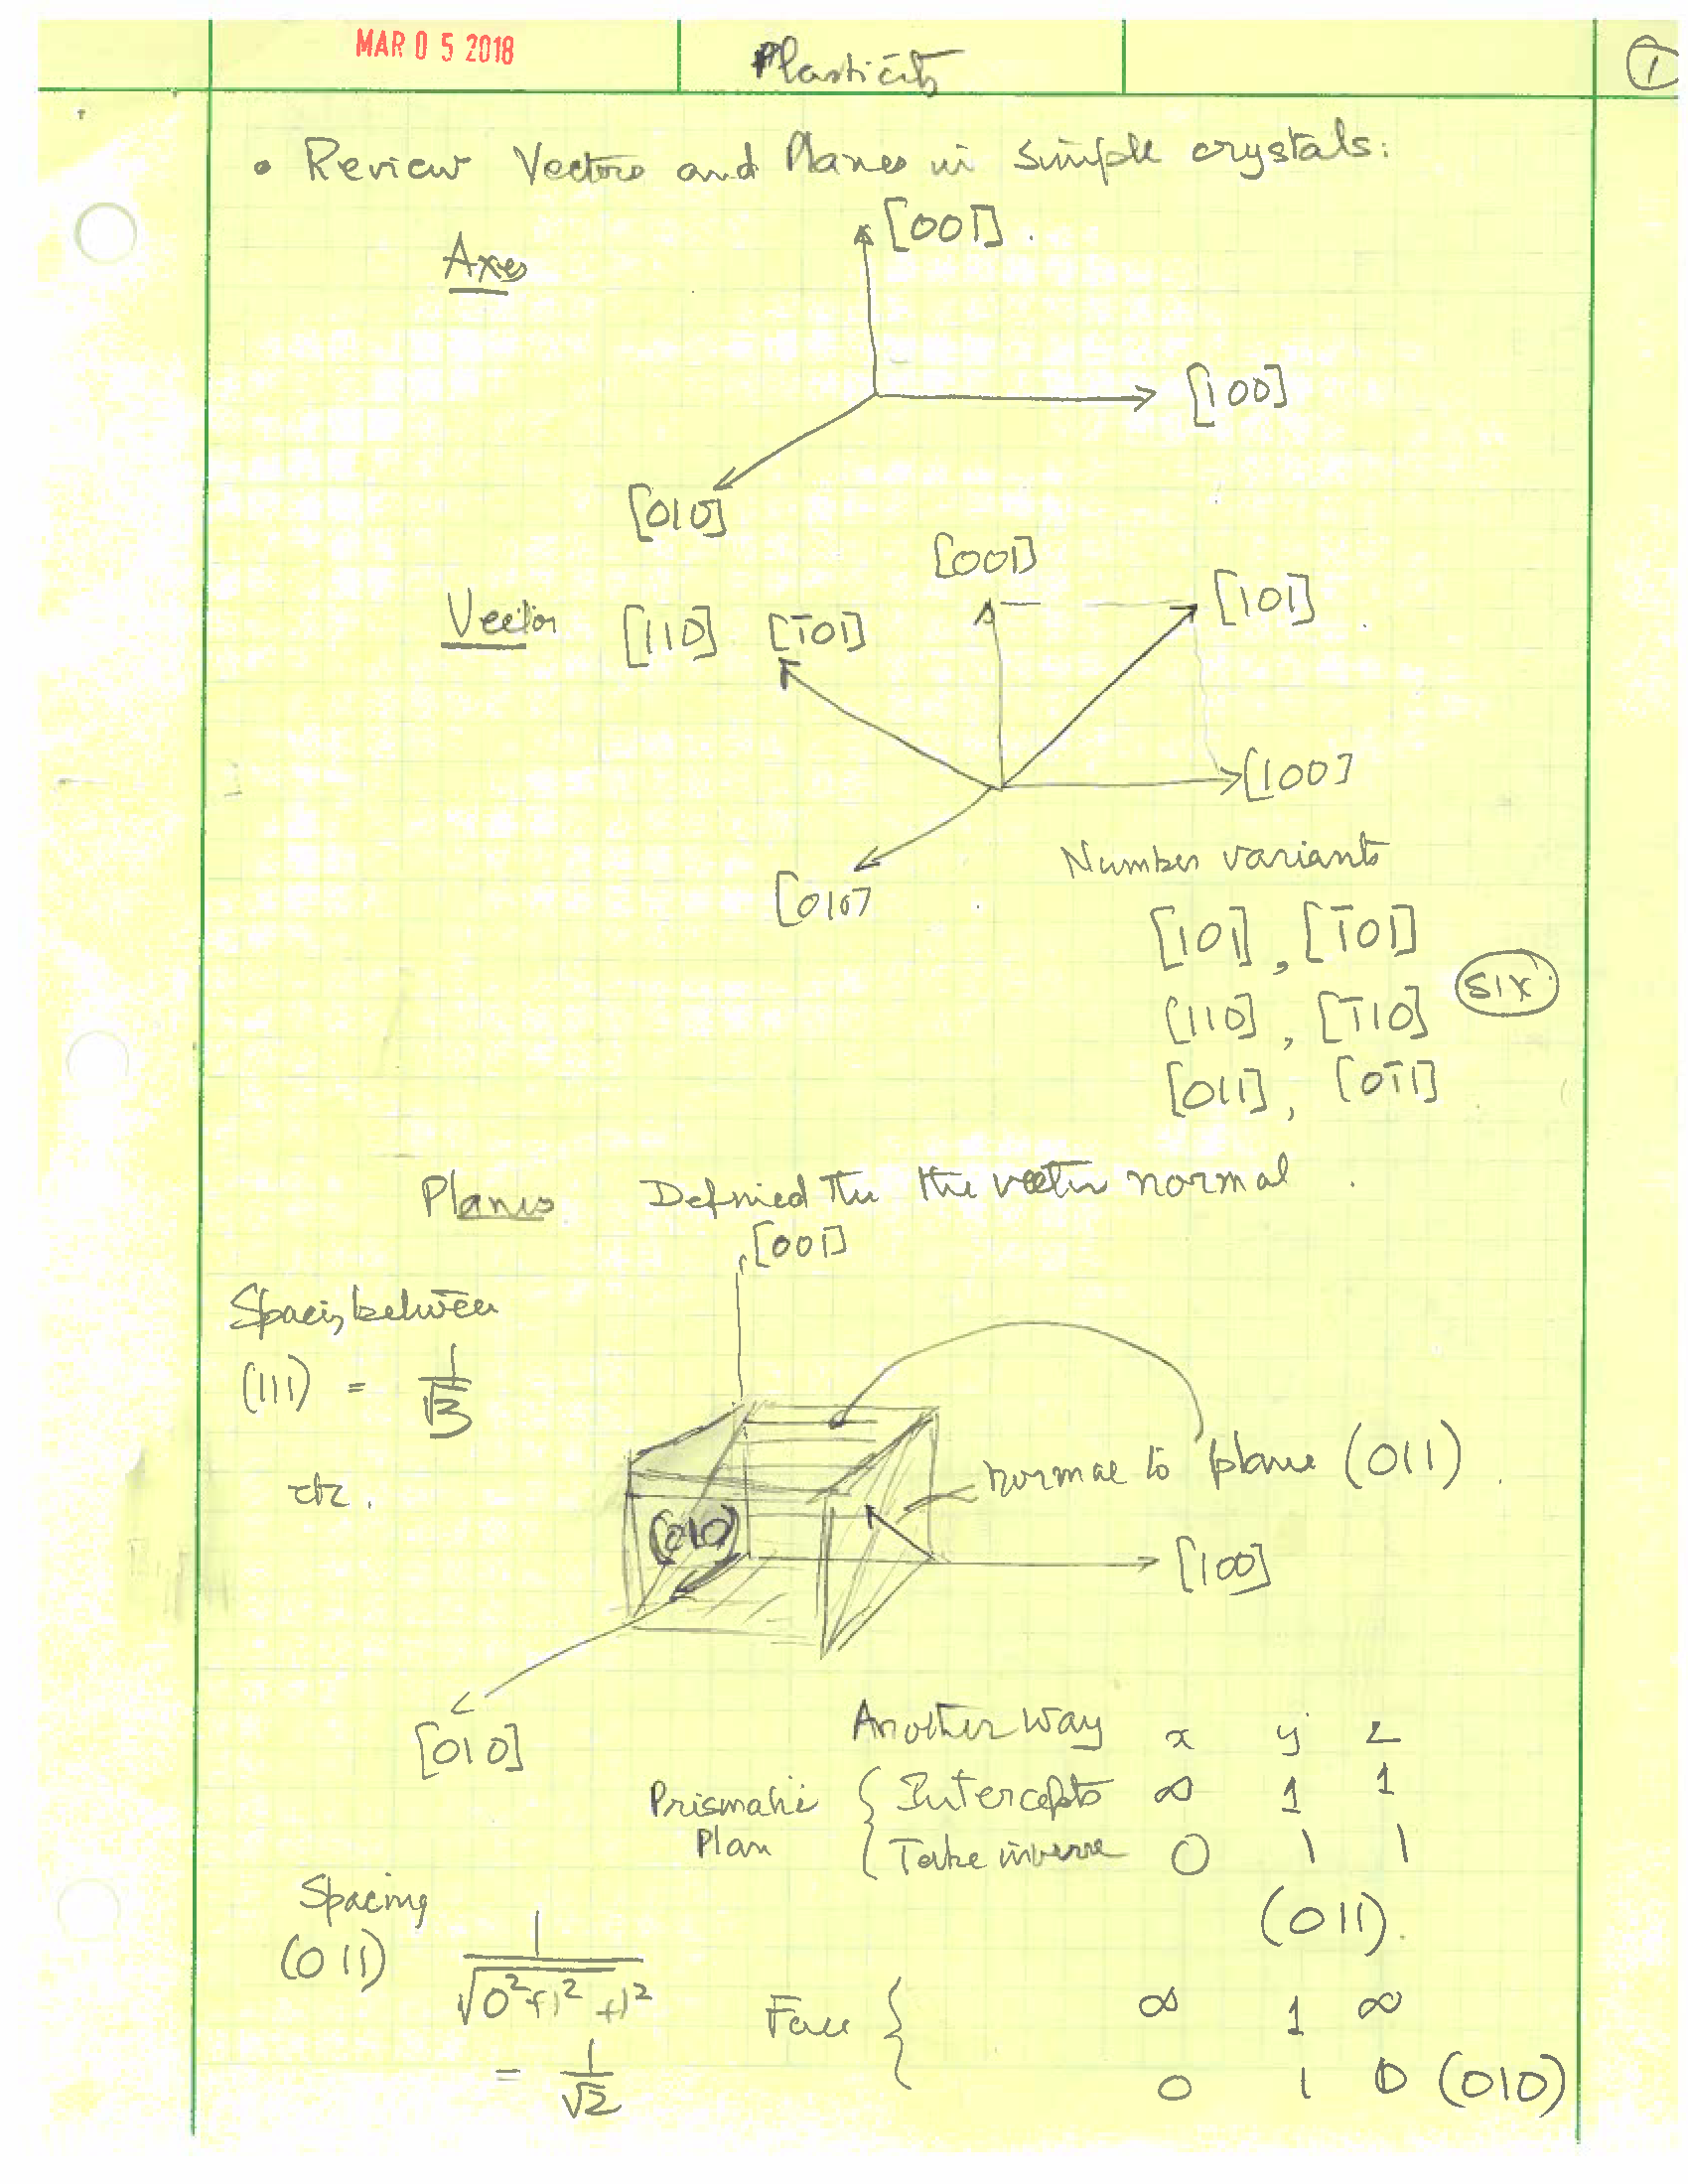 MAR 0 5 2018
Plasticity
1
• Review Vectors and Planes in simple crystals:
Axes
[001]
[100]
[010]
Vector [110] [1̄01]
[001]
[101]
[100]
[010]
Number variants
[101], [1̄01]
[110], [1̄10]
six
[011], [01̄1]
Planes Defined the vector normal
[001]
Spacing between
(111) = 1/√3
etc.
(010)
normal to plane (011)
[100]
[010]
Another way x y z
Prismatic Plan { Intercepts ∞ 1 1
{ Take inverse 0 1 1
(011).
Spacing
(011) 1/√0²+1²+1²
= 1/√2
Face { ∞ 1 ∞
0 1 0 (010)